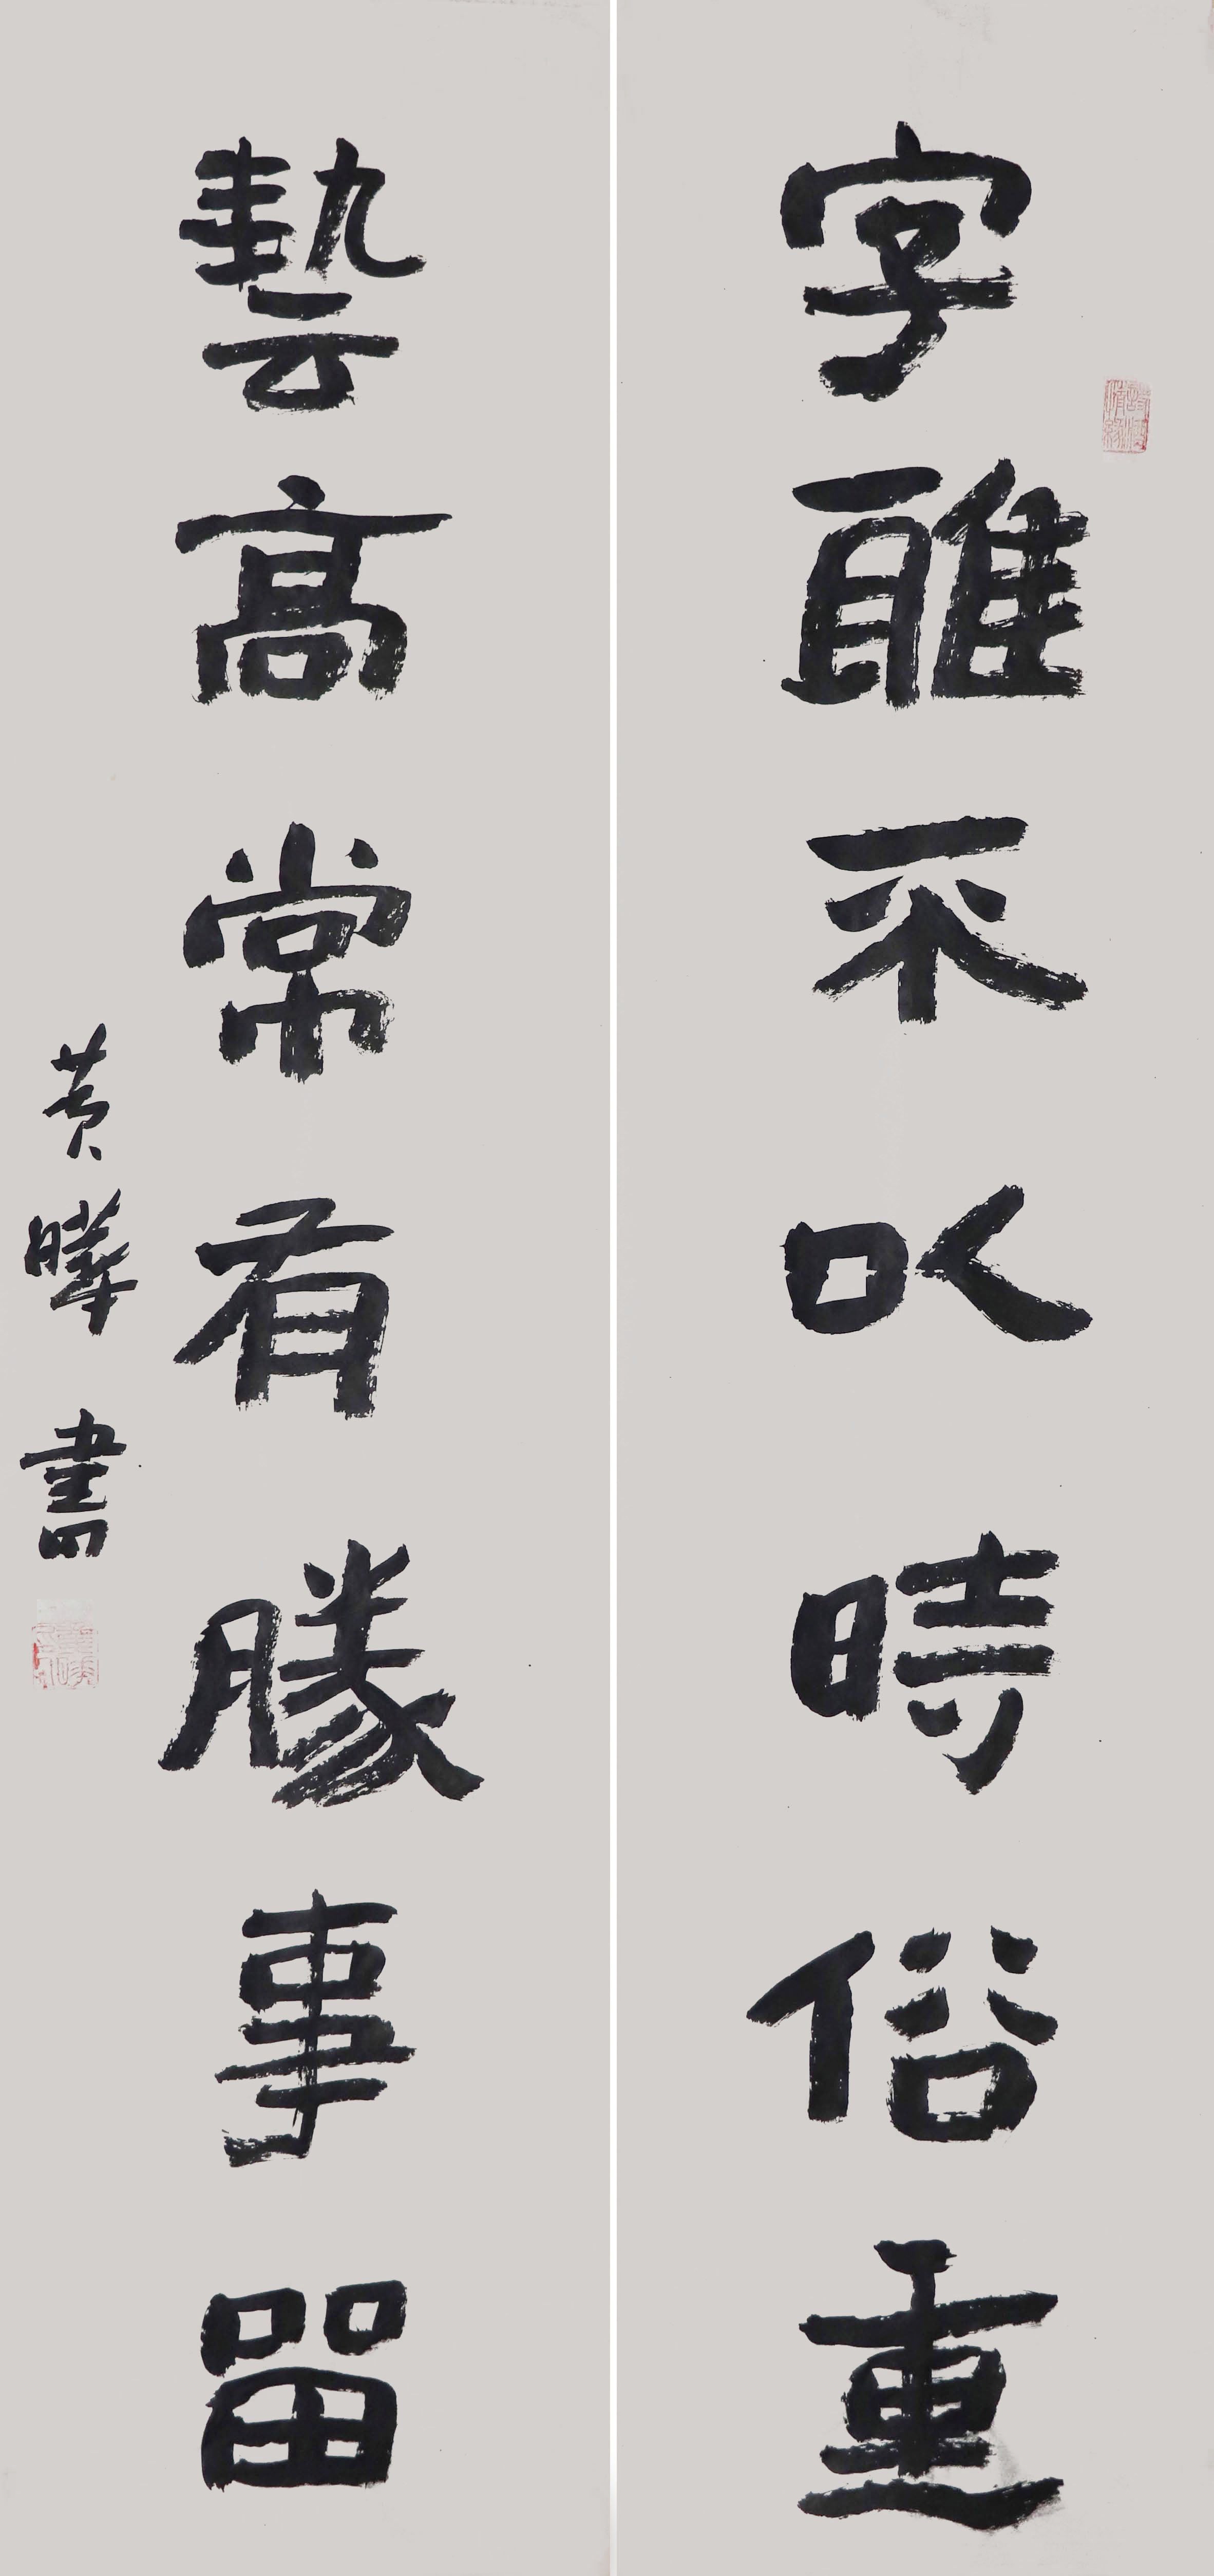 字雅不以時俗重
藝高常有勝事留
黄曄書